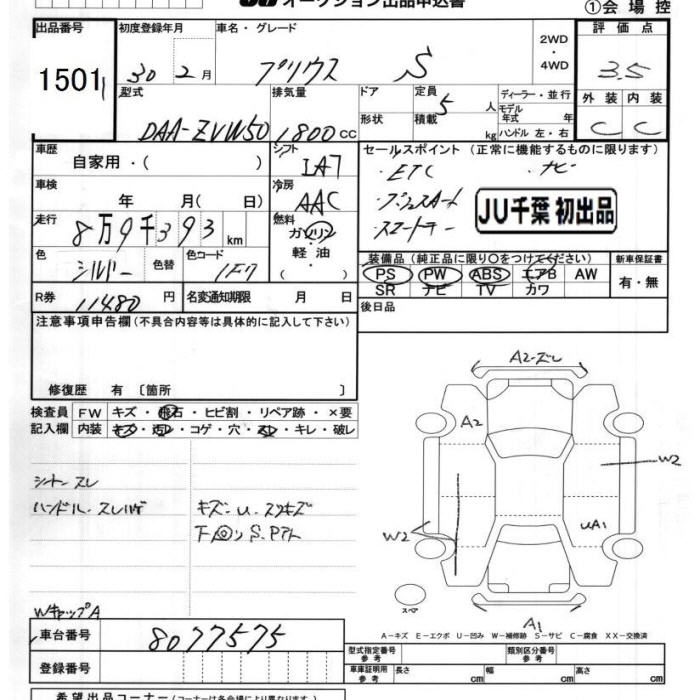 オークション出品申込書
①会場控
出品番号 初度登録年月 車名・グレード 評価点
1501 30 2月 プリウス S 2WD・4WD 3.5
型式 排気量 ドア 定員 5人 ディーラー・並行 外装 内装
DAA-ZVW50 1800cc 形状 積載 kg モデル年式 年 C C
ハンドル 左・右
車歴 シフト セールスポイント (正常に機能するものに限ります)
自家用・( ) IA7 ・ETC ・ナビ
車検 冷房 ・プッシュスタート
年 月( 日) AAC スマートキー JU千葉 初出品
走行 燃料
8万9千393km ガソリン
軽油・( )
色 色替 色コード 装備品(純正品に限り○をつけてください) 新車保証書
シルバー 1F7 PS PW ABS エアB AW 有・無
SR ナビ TV カワ
R券 11480円 名変通知期限 月 日 後日品
注意事項申告欄(不具合内容等は具体的に記入して下さい)
修復歴 有〔箇所 〕
検査員 FW キズ・飛石・ヒビ割・リペア跡・×要
記入欄 内装 キズ・汚レ・コゲ・穴・スレ・キレ・破レ
A2-ズレ
A2
W2
シートスレ
ハンドル・スレハゲ キズ-U・スリキズ
UA1
W2
スペア
WキャップA
A1
A-キズ E-エクボ U-凹み W-補修跡 S-サビ C-腐食 XX-交換済
車台番号 8077575
登録番号
型式指定番号 参考 類別区分番号 参考
車庫証明用 参考 長さ cm 幅 cm 高さ cm
希望出品コーナー(コーナーは各会場により異なります)